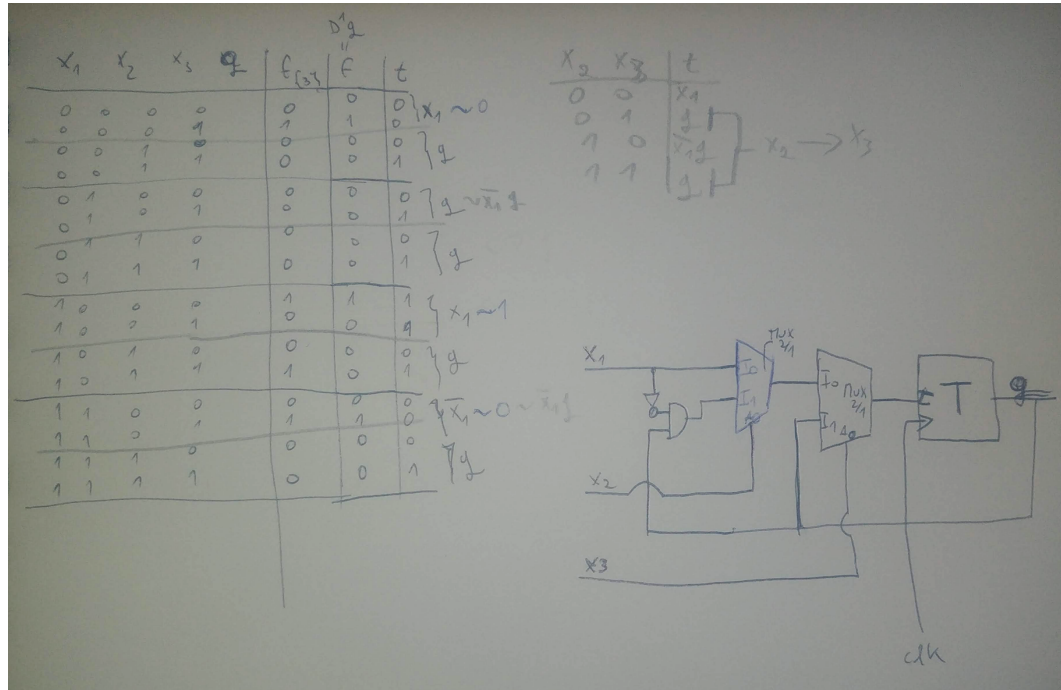 D¹q
॥
x₁ x₂ x₃ q f{3} f t
0 0 0 0 0 0 0
0 0 0 1 1 1 0
} x₁ ~ 0
0 0 1 0 0 0 0
0 0 1 1 0 0 1
} q
0 1 0 0 0 0 0
0 1 0 1 0 0 1
} q ~ x̄₁ q
0 1 1 0 0 0 0
0 1 1 1 0 0 1
} q
1 0 0 0 1 1 1
1 0 0 1 0 0 1
} x₁ ~ 1
1 0 1 0 0 0 0
1 0 1 1 1 0 1
} q
1 1 0 0 0 0 0
1 1 0 1 1 1 0
} x̄₁ ~ 0 ~ x̄₁ q
1 1 1 0 0 0 0
1 1 1 1 0 0 1
} q
x₂ x₃ t
0 0 x₁
0 1 q
1 0 x̄₁q
1 1 q
x₂ → x₃
x₁
I0
I1
A0
MUX 2/1
I0
I1
A0
MUX 2/1
t
T
q
x₂
x3
clk